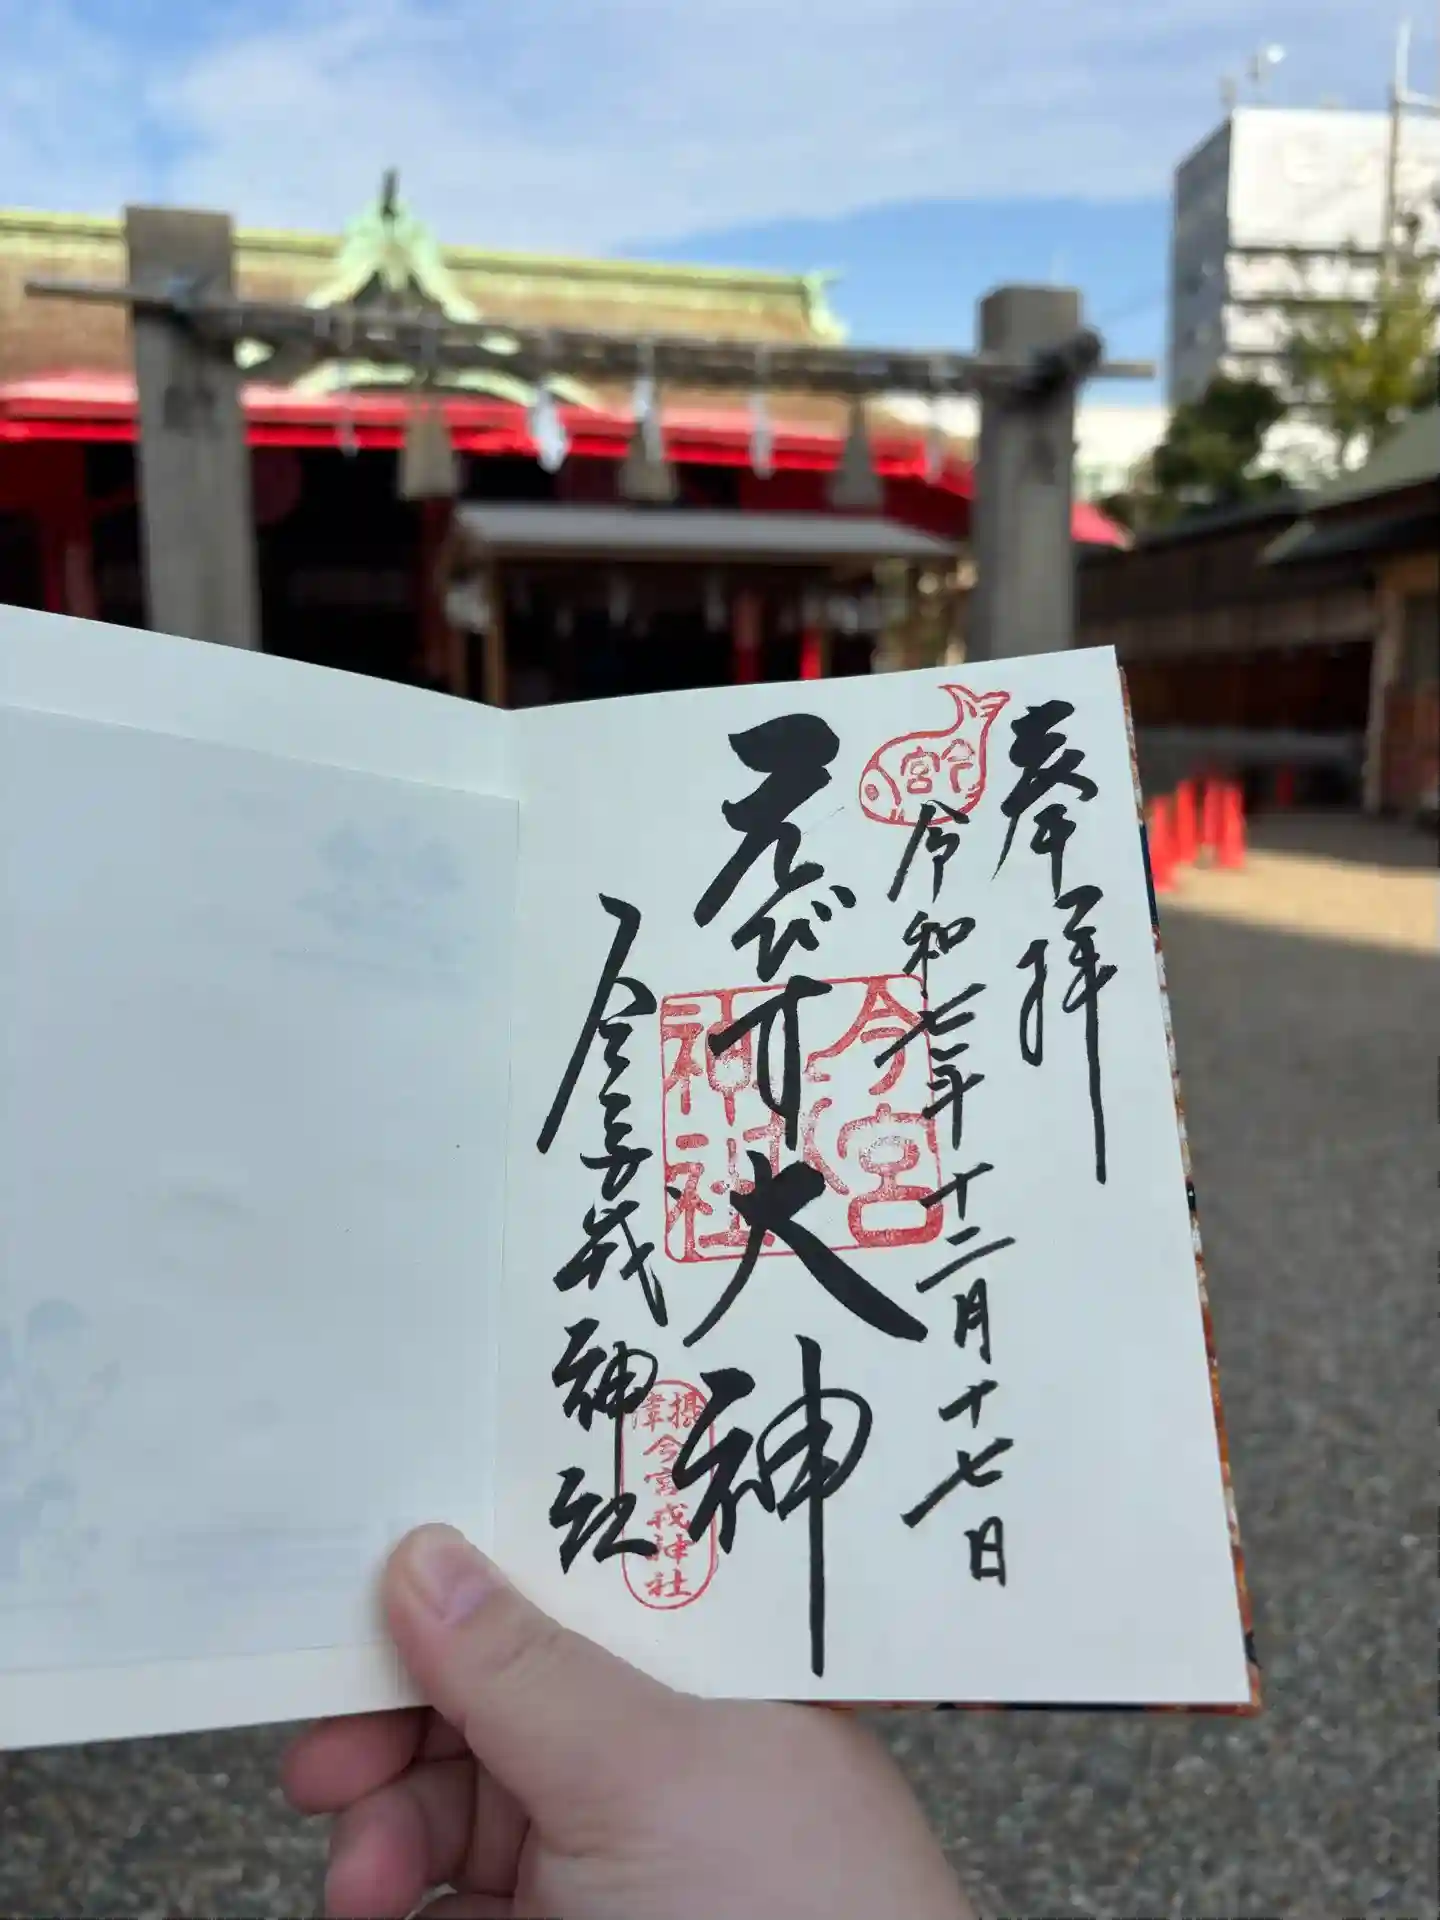 奉拝
令和七年十二月十七日
今宮
えびす大神
今宮戎神社
今宮戎神社
摂津
今宮戎神社